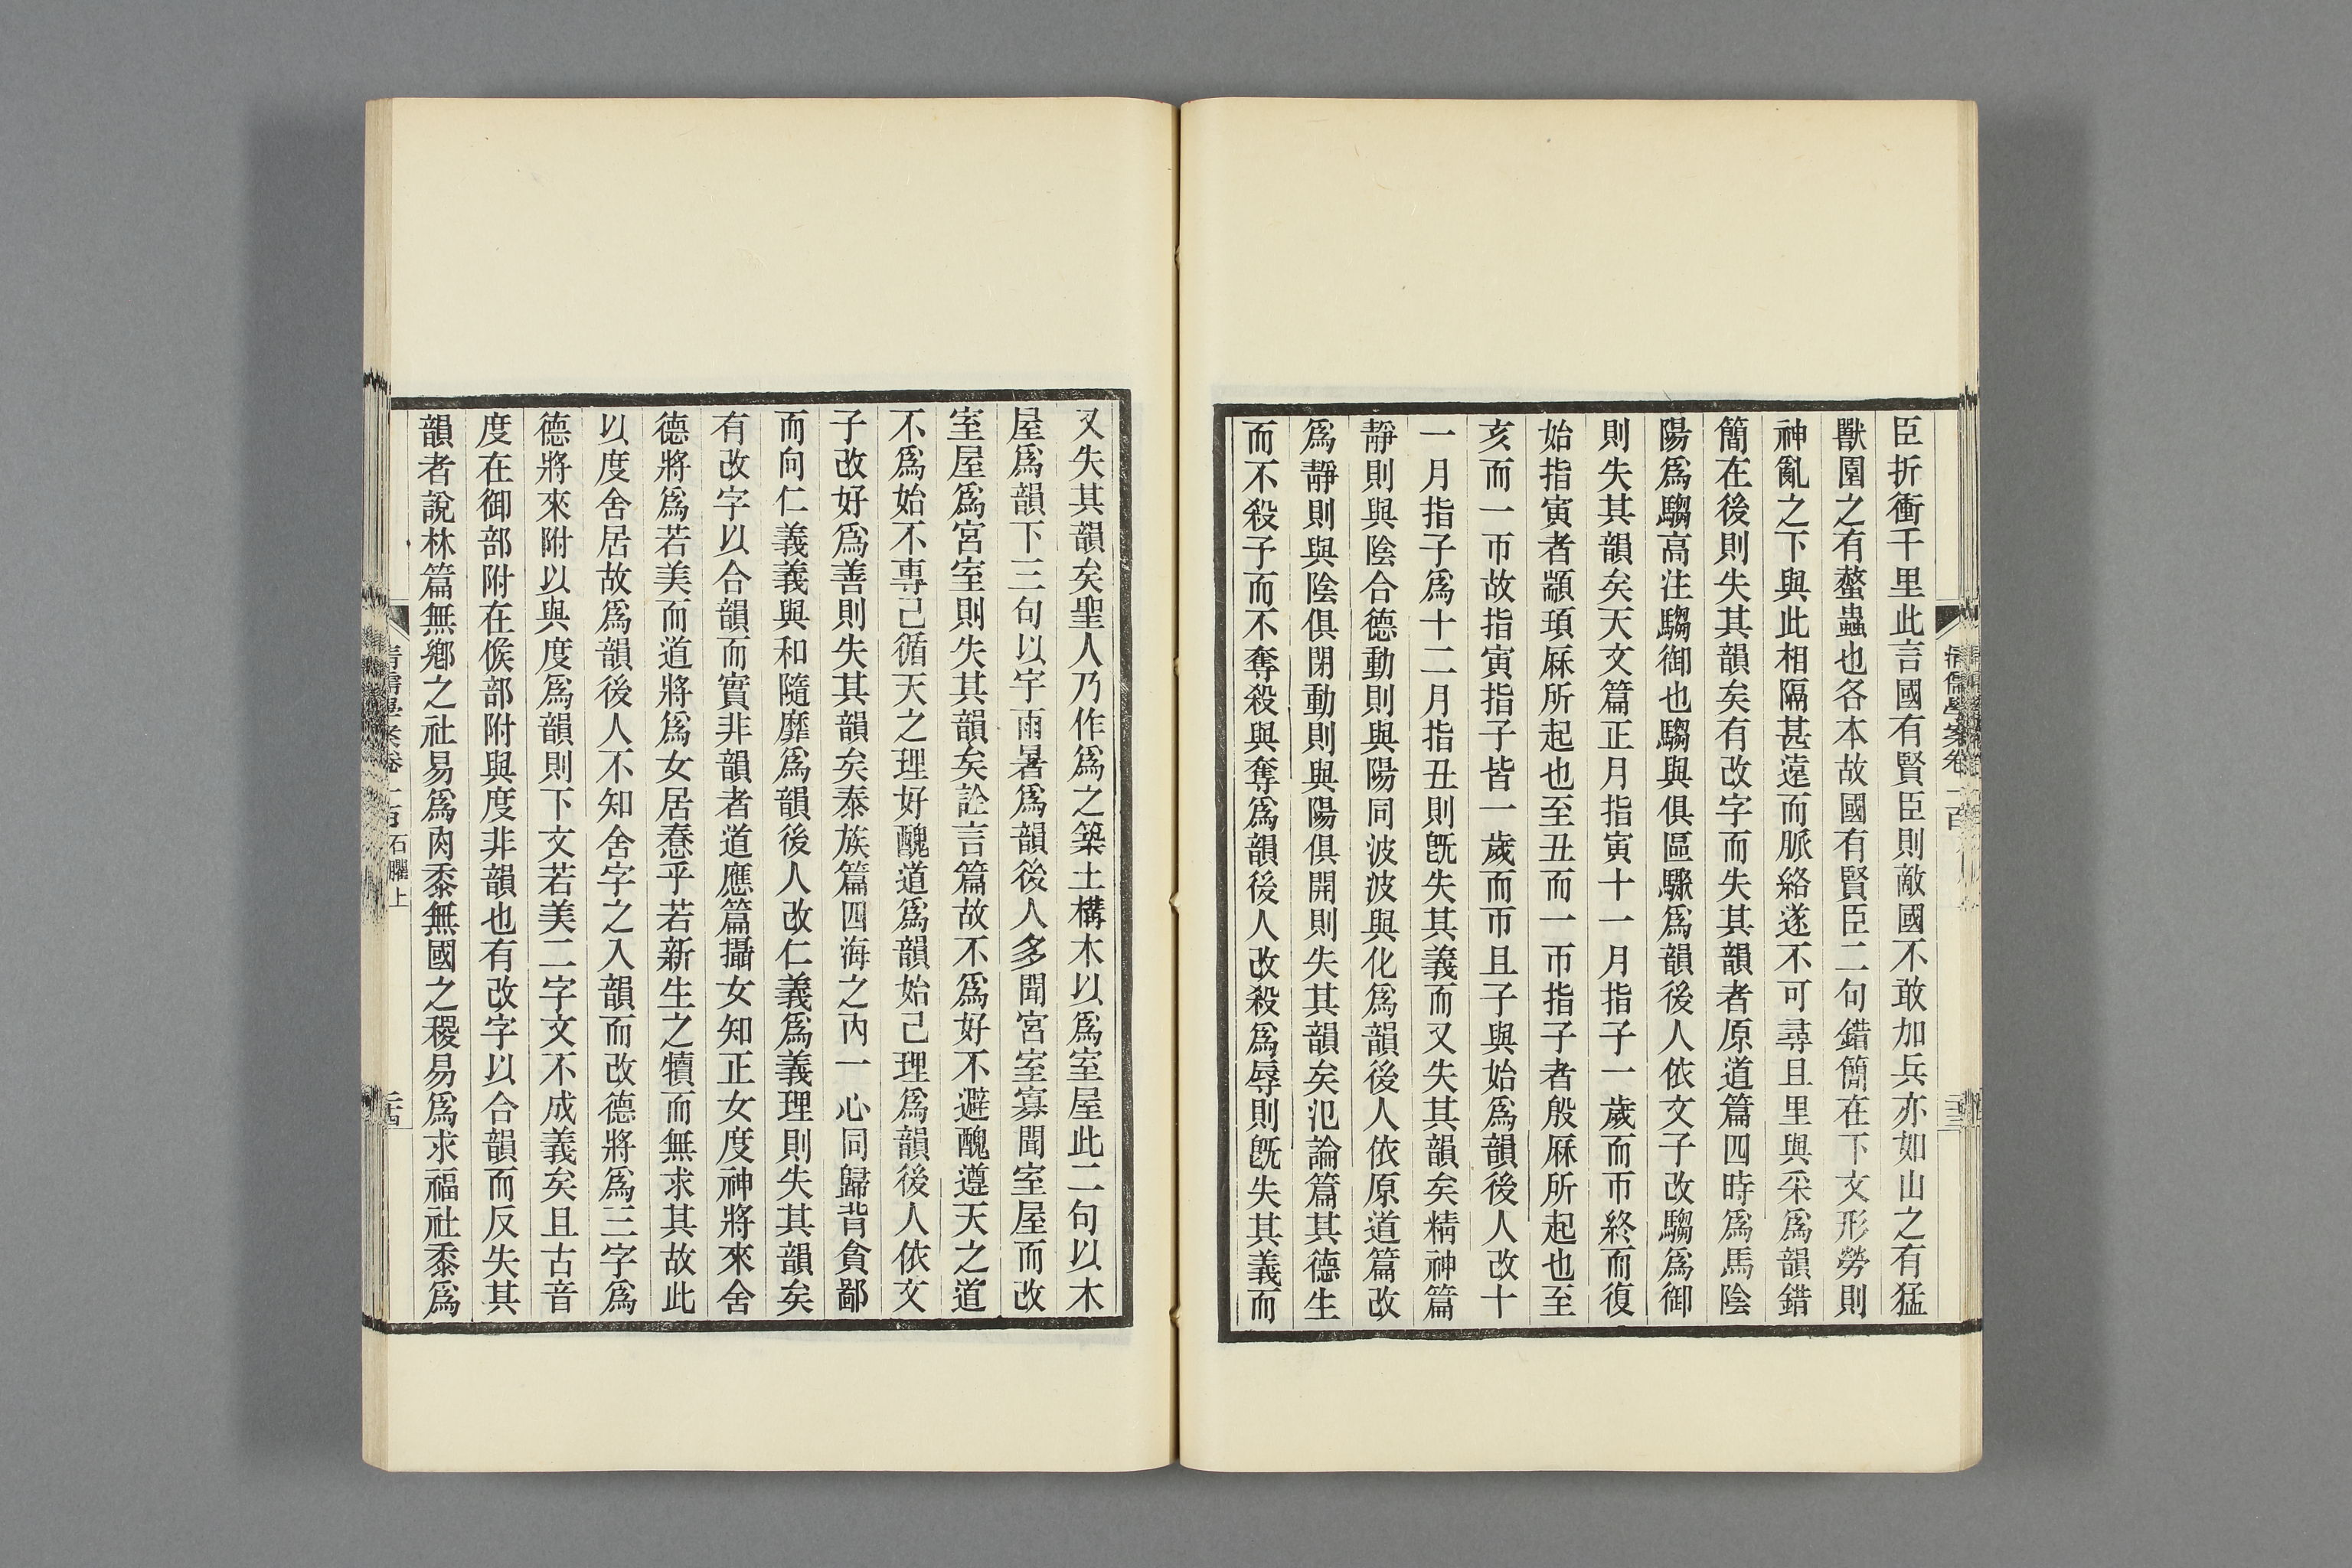 臣折衝千里此言國有賢臣則敵國不敢加兵亦如山之有猛
獸園之有螫蟲也各本故國有賢臣二句錯簡在下文形勞則
神亂之下與此相隔甚遠而脈絡遂不可尋且里與采爲韻錯
簡在後則失其韻矣有改字而失其韻者原道篇四時爲馬陰
陽爲騶高注騶御也騶與俱區驟爲韻後人依文子改騶爲御
則失其韻矣天文篇正月指寅十一月指子一歲而帀終而復
始指寅者顓頊厤所起也至丑而一帀指子者殷厤所起也至
亥而一帀故指寅指子皆一歲而帀且子與始爲韻後人改十
一月指子爲十二月指丑則旣失其義而又失其韻矣精神篇
靜則與陰合德動則與陽同波波與化爲韻後人依原道篇改
爲靜則與陰俱閉動則與陽俱開則失其韻矣氾論篇其德生
而不殺子而不奪殺與奪爲韻後人改殺爲辱則旣失其義而
又失其韻矣聖人乃作爲之築土構木以爲室屋此二句以木
屋爲韻下三句以宇雨暑爲韻後人多聞宮室寡聞室屋而改
室屋爲宮室則失其韻矣詮言篇故不爲好不避醜遵天之道
不爲始不專己循天之理好醜道爲韻始己理爲韻後人依文
子改好爲善則失其韻矣泰族篇四海之內一心同歸背貪鄙
而向仁義義與和隨靡爲韻後人改仁義爲義理則失其韻矣
有改字以合韻而實非韻者道應篇攝女知正女度神將來舍
德將爲若美而道將爲女居惷乎若新生之犢而無求其故此
以度舍居故爲韻後人不知舍字之入韻而改德將爲三字爲
德將來附以與度爲韻則下文若美二字文不成義矣且古音
度在御部附在候部附與度非韻也有改字以合韻而反失其
韻者說林篇無鄉之社易爲肉黍無國之稷易爲求福社黍爲
清儒學案卷一百
石臞上